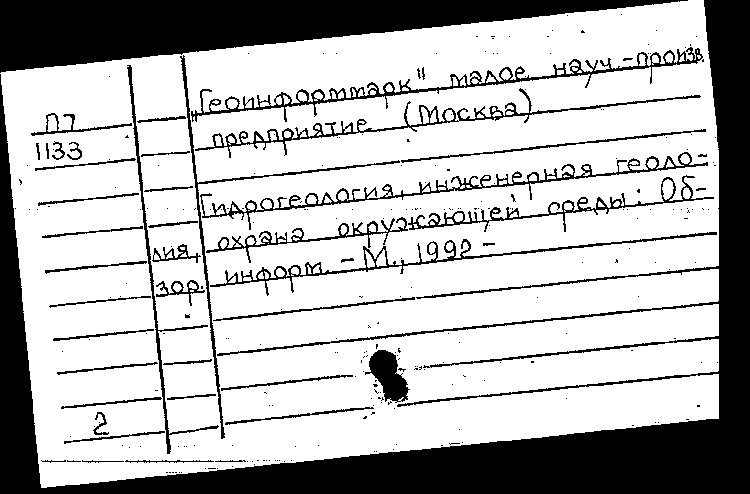 П7
1133
„Геоинформмарк", малое науч.-произв.
предприятие (Москва)
Гидрогеология, инженерная геоло-
гия, охрана окружающей среды: Об-
зор. информ. - М., 1992 -
2